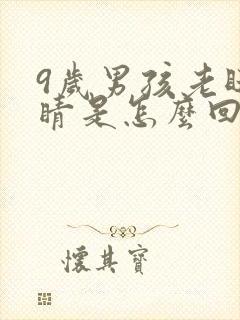 9歲男孩老
睛是怎麼回
懷其寶